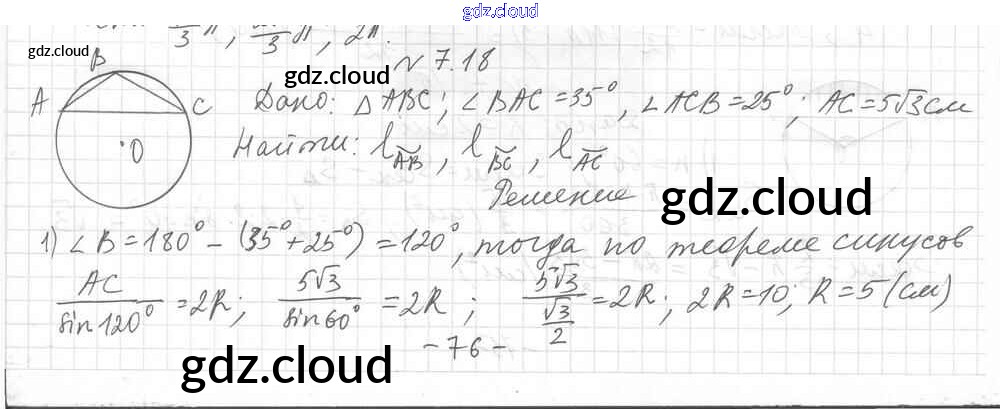 gdz.cloud
π/3, π/3, 2π.
gdz.cloud
№ 7.18
gdz.cloud
B
A
C
O
Дано: △ ABC; ∠ BAC = 35°, ∠ ACB = 25°; AC = 5√3 см
Найти: l_AB, l_BC, l_AC
Решение
gdz.cloud
1) ∠ B = 180° - (35° + 25°) = 120°, тогда по теореме синусов
AC/sin 120° = 2R; 5√3/sin 60° = 2R; 5√3/(√3/2) = 2R; 2R = 10; R = 5 (см)
- 76 -
gdz.cloud